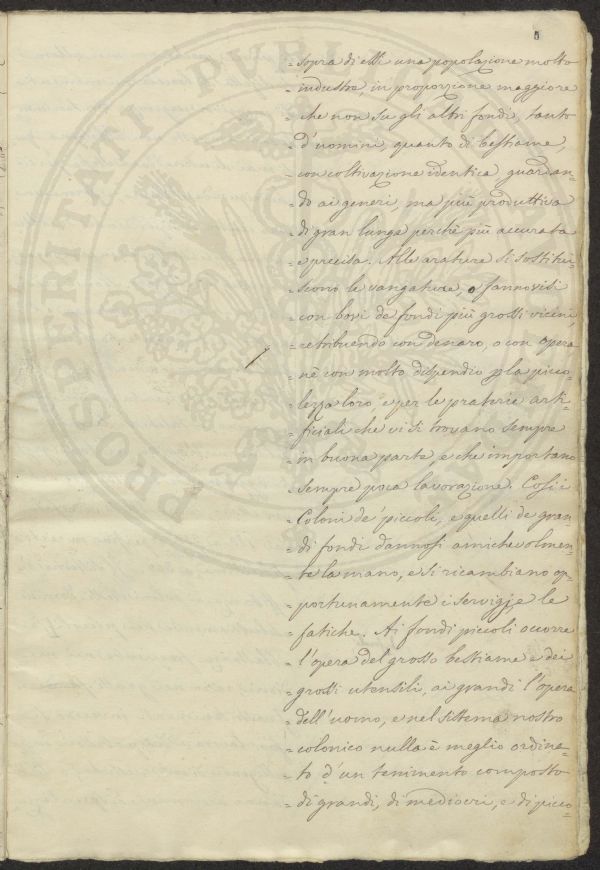 5
= sopra di essi una popolazione molto
= industre, in proporzione maggiore
= che non su gli altri fondi, tanto
= d'uomini, quanto di bestiame,
= con coltivazione identica, guardan-
= do ai generi, ma più produttiva
= di gran lunga perchè più accurata
= e precisa. Alle arature si sostitui-
= scono le vangature, o fannovisi
= con bovi de' fondi più grossi vicini,
= retribuendo con denaro, o con opera
= nè con molto dispendio p la picco-
= lezza loro e per le praterie arti-
= ficiali che vi si trovano sempre
= in buona parte, e che importano
= sempre poca lavorazione. Così i
= Coloni de' piccoli, e quelli de' gran-
= di fondi dannosi amichevolmen-
= te la mano, e si ricambiano op-
= portunamente i servigj e le
= fatiche. Ai fondi piccoli occorre
= l'opera del grosso bestiame e dei
= grossi utensili, ai grandi l'opera
= dell'uomo, e nel sistema nostro
= colonico nulla è meglio ordina-
= to d'un tenimento composto
= di grandi, di mediocri, e di picco-
PROSPERITATI PUBLICAE